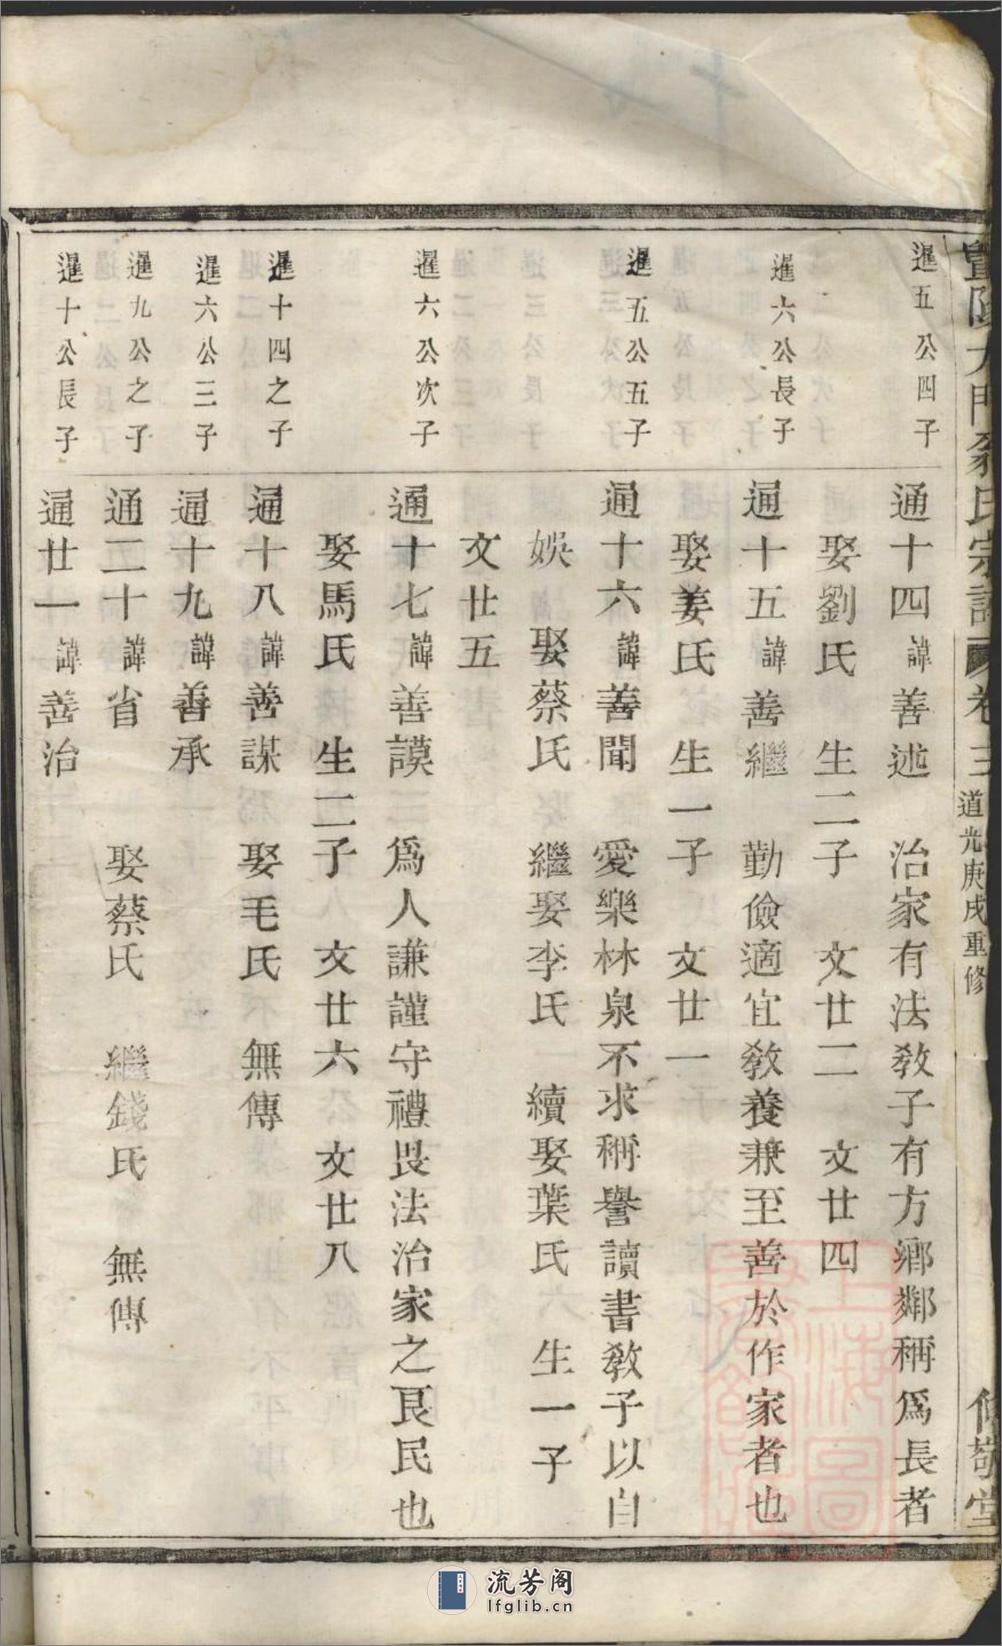 暨陽大門蔡氏宗譜 卷三 道光庚戌重修 敬堂
暹五公四子
通十四諱善述 治家有法教子有方鄉鄰稱爲長者
娶劉氏 生二子 文廿二 文廿四
暹六公長子
通十五諱善繼 勤儉適宜教養兼至善於作家者也
娶姜氏 生一子 文廿一
暹五公五子
通十六諱善聞 愛樂林泉不求稱譽讀書教子以自
娛 娶蔡氏 繼娶李氏 續娶葉氏 生一子
文廿五
暹六公次子
通十七諱善謨 爲人謙謹守禮畏法治家之良民也
娶馬氏 生二子 文廿六 文廿八
暹十四之子
通十八諱善謀 娶毛氏 無傳
暹六公三子
通十九諱善承
暹九公之子
通二十諱省 娶蔡氏 繼錢氏 無傳
暹十公長子
通廿一諱善治
流芳阁
lfglib.cn